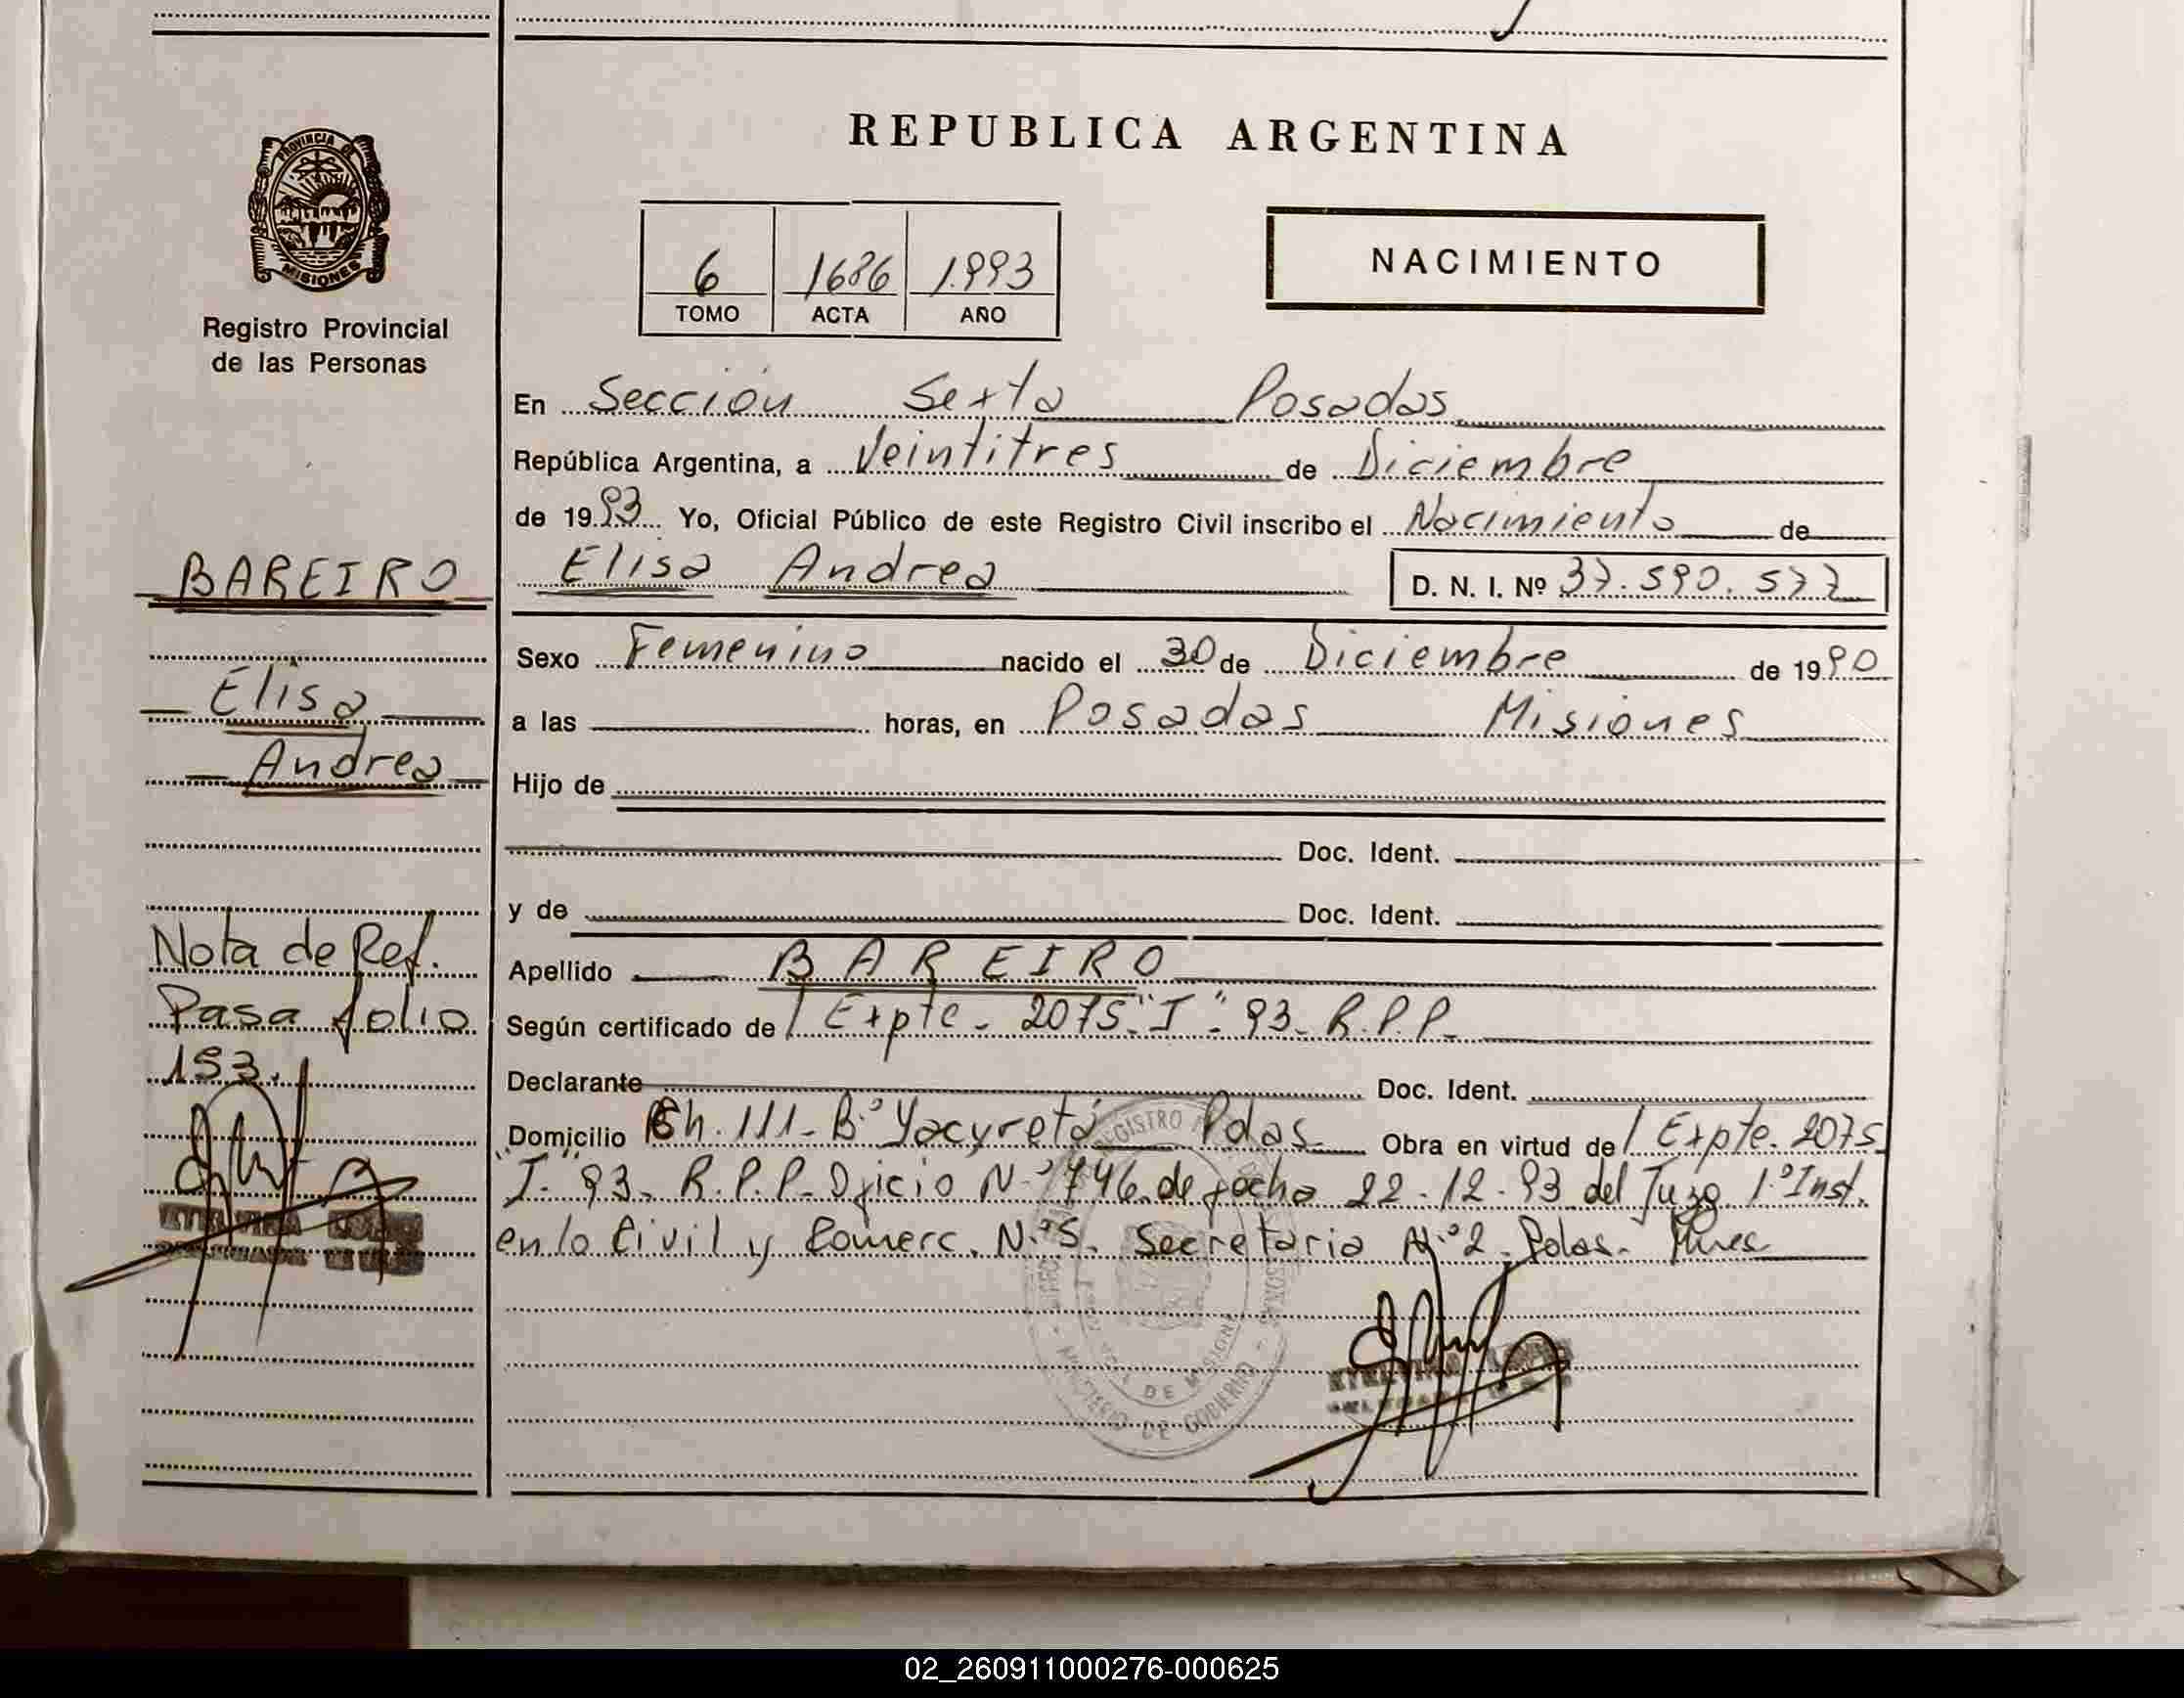 REPUBLICA ARGENTINA
PROVINCIA DE
MISIONES
Registro Provincial
de las Personas
6 1686 1.993
TOMO ACTA AÑO
NACIMIENTO
En Sección Sexta Posadas
República Argentina, a Veintitres de Diciembre
de 1993 Yo, Oficial Público de este Registro Civil inscribo el Nacimiento de
BAREIRO
Elisa Andrea D. N. I. Nº 37.590.577
Sexo Femenino nacido el 30 de Diciembre de 1990
Elisa
a las horas, en Posadas Misiones
Andrea
Hijo de
Doc. Ident.
y de Doc. Ident.
Nota de Ref.
Apellido BAREIRO
Pasa folio
Según certificado de / Expte. 2075."I". 93. R.P.P.
193.
Declarante Doc. Ident.
Domicilio Ch. 111. B.º Yacyretá Pdas. Obra en virtud de / Expte. 2075
"I". 93. R.P.P. Oficio N.º 746 de fecha 22.12.93 del Juzg. 1.º Inst.
en lo Civil y Comerc. N.º 5. Secretaria N.º 2. Pdas. Mnes
REGISTRO
MINISTERIO DE GOBIERNO
DE MISIONES
02_260911000276-000625